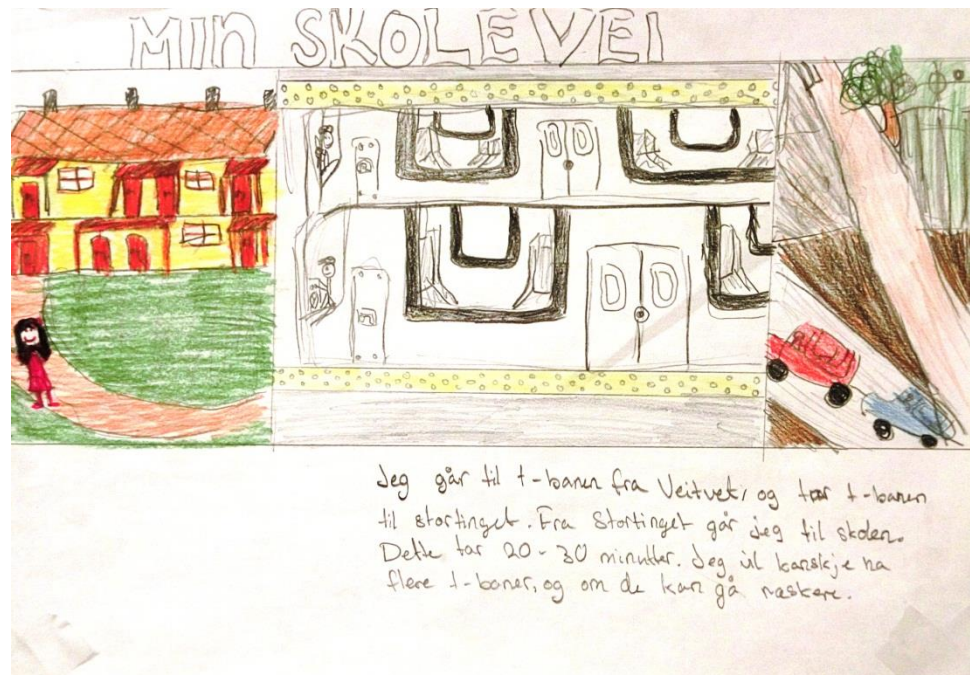 MIN SKOLEVEI
Jeg går til t-banen fra Veitvet, og tar t-banen
til stortinget. Fra Stortinget går jeg til skolen.
Dette tar 20-30 minutter. Jeg vil kanskje ha
flere t-baner, og om de kan gå raskere.